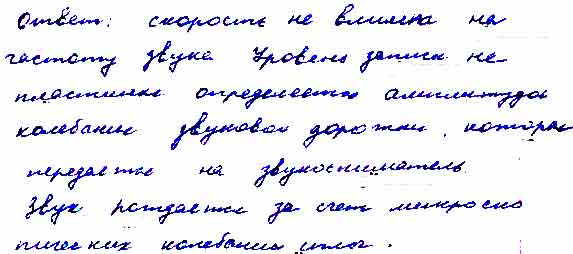 Ответ: скорость не влияла на
частоту звука Уровень записи не
пластинке определяется амплитудой
колебания звуковой дорожки, которые
передается на звукосниматель
Звук рождается за счет микроско
пических колебания иглы.